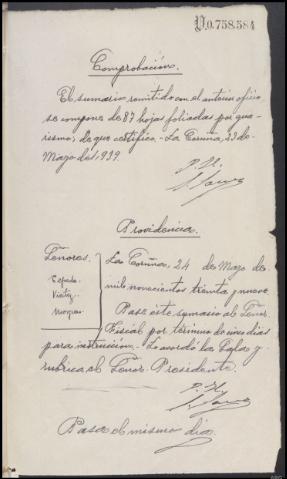 D.0.758.584
Comprobación.
El sumario remitido con el anterior oficio
se compone de 87 hojas foliadas por gua-
rismo; de que certifico.- La Coruña, 23 de
Mayo de 1939.
P. H.
Providencia.
Señores.
La Coruña, 24 de Mayo de
mil novecientos treinta y nueve.
Pase este sumario al Señor
Fiscal por término de cinco dias
para instrucción.- Lo acordó la Sala y
rubrica el Señor Presidente.
P. H.
Pasa el mismo dia.